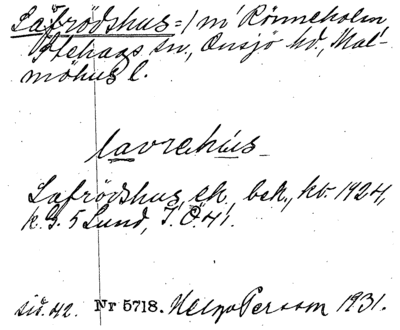 Lafrödshus = / m' Rönneholm
Stehags sn., Onsjö hd., Mal-
möhus l.
lavrehús
Lafrödshus, ek. bek., kv. 1924,
k. G. 5 Lund, I. Ö. 41.
sid. 42. Nr 5718. Helge Persson 1931.